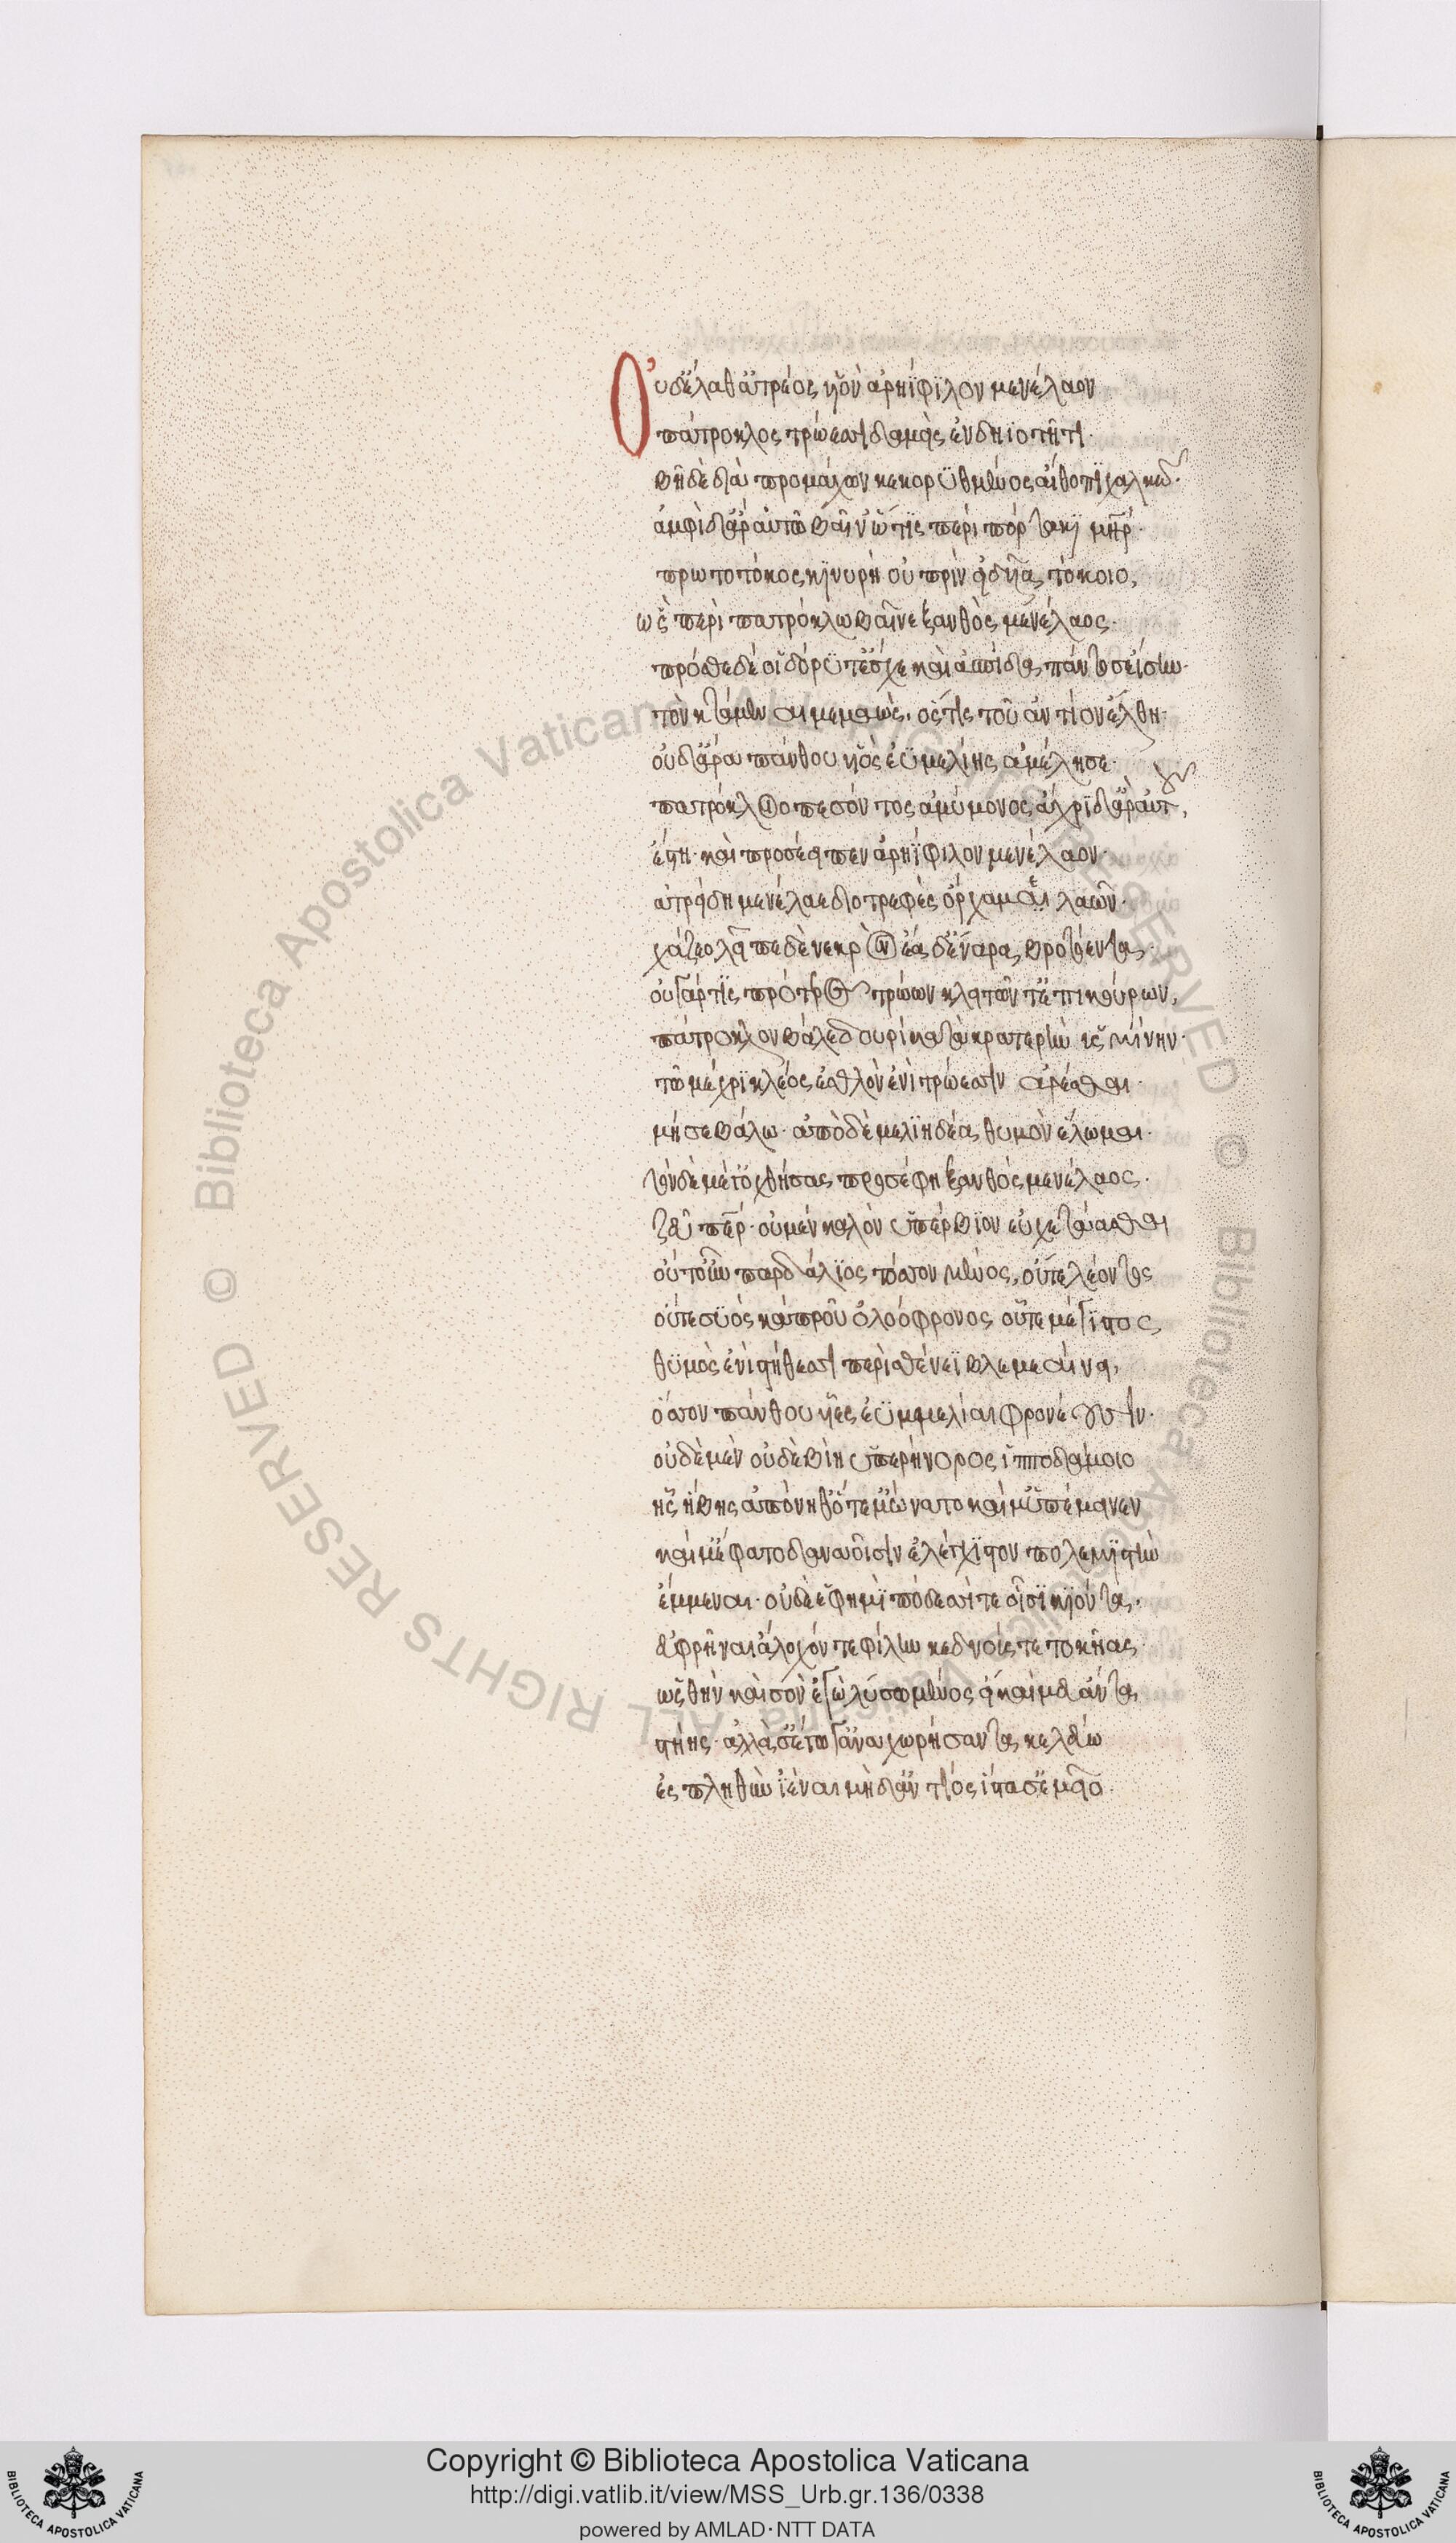 Οὐδ' ἔλαθ' ἀτρέος ϋἱὸν ἀρηίφιλον μενέλαον
πάτροκλος τρώεσσι δαμεὶς ἐν δηϊοτῆτι·
βῆ δὲ διὰ προμάχων κεκορυθμένος αἴθοπι χαλκῷ·
ἀμφὶ δ' ἄρ αὐτῷ βαῖν' ὥς τις περὶ πόρτακι μήτηρ·
πρωτοτόκος κινυρὴ οὐ πρὶν εἰδυῖα τόκοιο,
ὣς περὶ πατρόκλω βαῖνε ξανθὸς μενέλαος·
πρόσθε δέ οἱ δόρυ τ' ἔσχε καὶ ἀσπίδα πάντοσ' ἐίσην·
τὸν κτάμεναι μεμαὼς, ὅς τις τοῦ ἀντίον ἔλθη·
οὐδ' ἄρα πάνθου υἱὸς ἐϋμελίης ἀμέλησε·
πατρόκλοιο πεσόντος ἀμύμονος, ἄγχι δ' ἄρ' αὐτοῦ,
ἔστη· καὶ προσέειπεν ἀρηΐφιλον μενέλαον·
ἀτρείδη μενέλαε διοτρεφὲς ὄρχαμε λαῶν·
χάζεο λεῖπε δὲ νεκρὸν ἔα δ' ἔναρα βροτόεντα·
οὐ γάρ τις πρότερος τρώων κλειτῶν τ' ἐπικούρων,
πάτροκλον βάλε δουρὶ κατὰ κρατερὴν ὑσμίνην·
τῶ με χρὶ κλέος ἐσθλὸν ἐνὶ τρώεσσιν ἀρέσθαι·
μή σε βάλω· ἀπὸ δὲ μελιηδέα θυμὸν ἕλωμαι·
τὸν δὲ μέτ' ὀχθήσας προσέφη ξανθὸς μενέλαος·
ζεῦ πάτερ· οὐ μὲν καλὸν ὑπέρβιον εὐχετάασθαι
οὔτ' οὖν παρδάλιος τόσσον μένος, οὔτε λέοντος
οὔτε συὸς κάπρου ὀλοόφρονος οὗτε μέγιστος
θυμὸς ἐνὶ στήθεσσι περὶ σθένεϊ βλεμεαίνει,
ὅσσον πάνθου υἷες ἐϋμμελίαι φρονέουσιν·
οὐδὲ μὲν οὐδὲ βίη ὑπερήνορος ἱπποδάμοιο
ἧς ἥβης ἀπόνηθ' ὅτε μ' ὤνατο καί μ' ὑπέμεινεν
καί μ' ἔφατ' ἐν δαναοῖσιν ἐλέγχιστον πολεμιστὴν
ἔμμεναι· οὐδέ ἕ φημι πόδεσσί τε οἷσι κιόντα,
εὐφρῆναι ἄλοχόν τε φίλην κεδνούς τε τοκῆας
ὥς θην καὶ σὸν ἐγὼ λύσω μένος εἴ κέ μευ ἄντα
στήης· ἀλλά σ' ἔγωγ' ἀναχωρήσαντα κελεύω
ἐς πληθὺν ἰέναι μὴ δ' ἀντίος ἵστασ' ἐμεῖο·
Copyright © Biblioteca Apostolica Vaticana
http://digi.vatlib.it/view/MSS_Urb.gr.136/0338
powered by AMLAD·NTT DATA